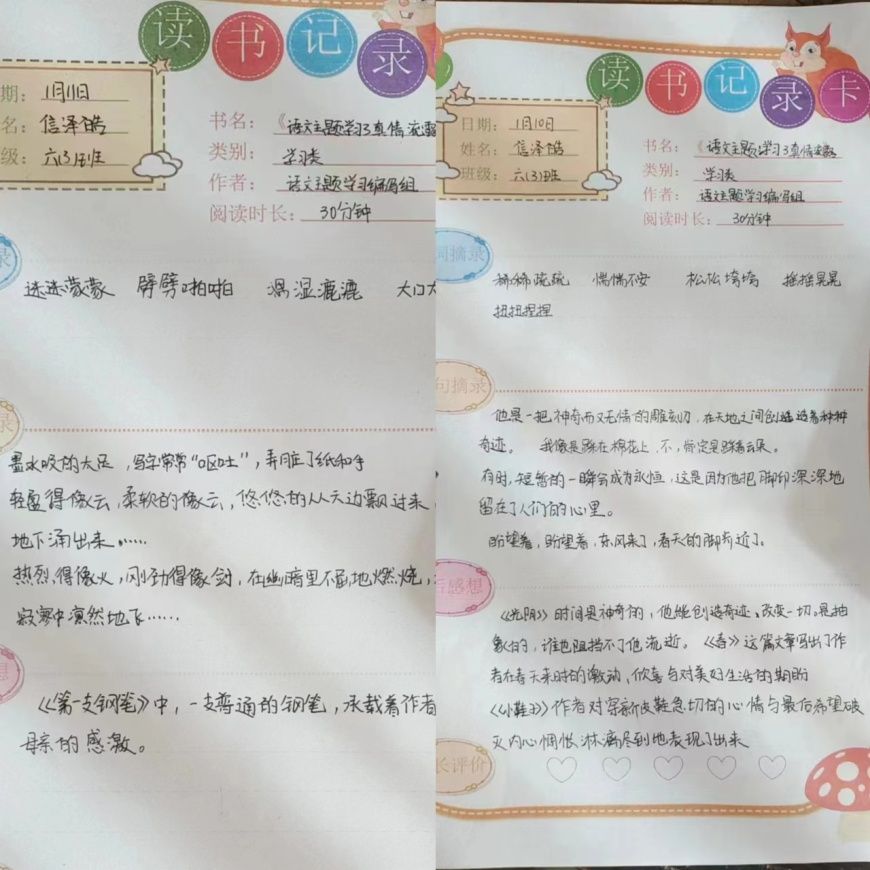 读书记录
期：1月11日
名：信泽皓
级：六(3)班
书名：《语文主题学习3真情流露
类别：学习类
作者：语文主题学习编写组
阅读时长：30分钟
录
迷迷蒙蒙 劈劈啪啪 湿漉漉
录
墨水吸的太足，写字常常“呕吐”，弄脏了纸和手
轻盈得像云，柔软的像云，悠悠的从天边飘过来
地下涌出来……
热烈得像火，刚劲得像剑，在幽暗里不屈地燃烧，
寂寥中凛然地飞……
想
《第一支钢笔》中，一支普通的钢笔，承载着作者
母亲的感激。
读书记录卡
日期：1月10日
姓名：信泽皓
班级：六(3)班
书名：《语文主题学习3真情流露
类别：学习类
作者：语文主题学习编写组
阅读时长：30分钟
词摘录
稀稀疏疏 惴惴不安 松松垮垮 摇摇晃晃
扭扭捏捏
句摘录
他是一把神奇而又无情的雕刻刀，在天地之间创造着种种
奇迹。 我像是踩在棉花上，不，肯定是踩着云朵。
有时，短暂的一瞬会成为永恒，这是因为他把脚印深深地
留在了人们的心里。
盼望着，盼望着，东风来了，春天的脚步近了。
后感想
《光阴》时间是神奇的，他能创造奇迹、改变一切。是抽
象的，谁也阻挡不了他流逝。《春》这篇文章写出了作
者在春天来时的激动、欣喜与对美好生活的期盼
作者对穿新皮鞋急切的心情与最后希望破
灭内心惆怅淋漓尽到地表现了出来
长评价